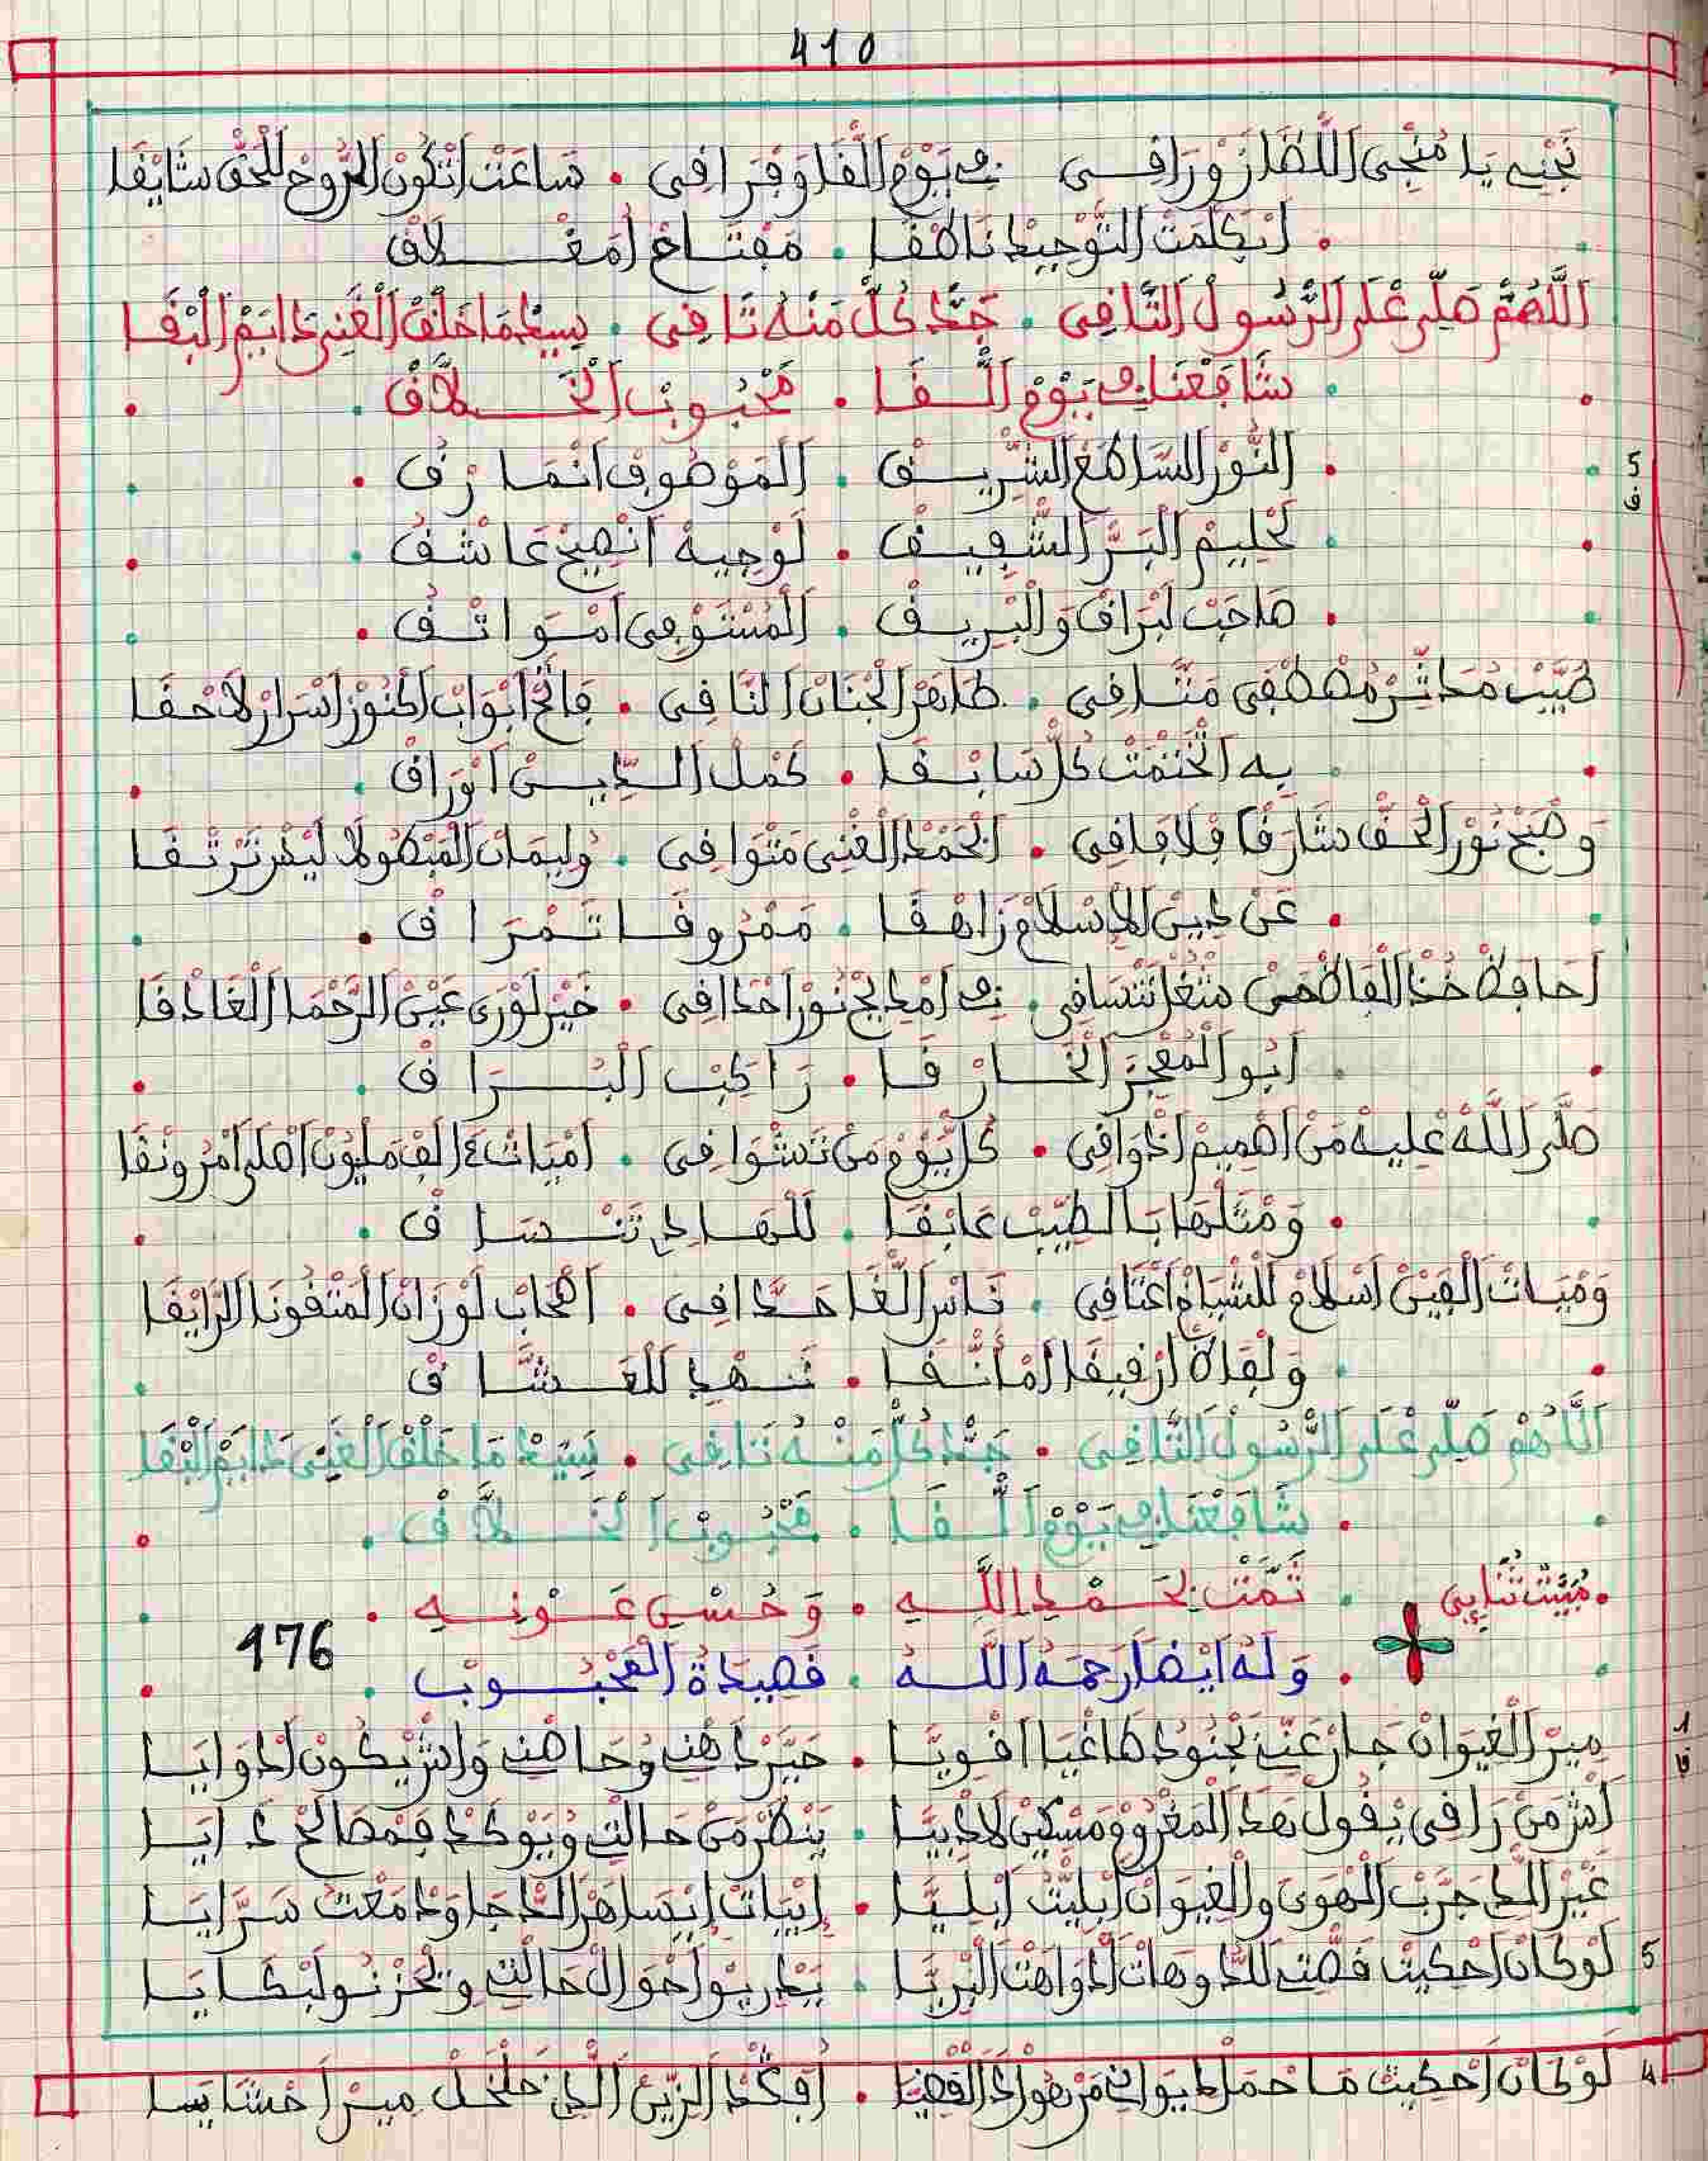 410
نجني يا منجي اللضا زورافي في يوم اللقا وفرافي . ساعت اتكون الروح للحق شايقا
. ابكلمت التوحيد ناطقا . مفتاح امغلاق
اللهم صل على الرسول التافي . جد كل منه تافي . سيد ما خلق الغني دايم البقا
. شافعنا في يوم اللقا . محبوب الخلاق
. النور الساطع الشريق . الموصوف انمارق
5
ق
. لحليم البر الشفيق . لوجيه انصيح عاشق
. صاحب لبراق والبريق . المستوفي امواثق
طيب مداثر مصطفى متافي . طاهر الجنان النافي . فاتح ابواب اكنوز اسرار لاحقا
. به اختمت كل سابقا . كمل الدين اوراق
وصبح نور الحق شارقا فلافافي . الحمد الغني متوافي . وليمان المبطولا ليش ترتقا
. عن دين الاسلام زاهقا . ممروقا تمراق
احافظ خذ الفاظ من شغل تنسافي . في امديح نور احدافي . خير لورى عين الرحما الغادقا
. ابو المعجز الخارقا . راكب البراق
صلى الله عليه من اصميم اذوافي . كل يوم من تشوافي . اميات ء الف مليون اهل امرونقا
. ومثلها بالطيب عابقا . للهادي تنساق
وميات الفين اسلام للشياخ اعتافي . ناس اللغا حدافي . اصحاب لوزان المتقونا الرايقا
. ولفاظ ارقيقا امأنقا . نهدي للعشاق
اللاهم صل على الرسول التافي . جد كل منه تافي . سيد ما خلق الغني دايم البقا
. شافعنا في يوم اللقا . محبوب الخلاق
. مبيت ثنايي . تمت بحمد الله . وحسن عونه
176
. وله ايضا رحمه الله . قصيدة المحبوب
مير الغيوان جار عني بجنود طاغيا اقويا . حير ذهني وحاطني واش يكون ادوايا
1
قا
اش من رافي يقول هذا المغروم مسكين لاذبيا . ينظر من حالتي ويوكد فمصالح غرايا
غير اللي جرب الهوى والغيوان ابليت ابليا . ابيات ايساهر الدجا ودامعت سرايا
لو كان احكيت قصتي للدوهات ادواهت البريا . يدريو احوال حالتي وتحزنو لبكايا
5
لوكان احكيت ما حمل ديواني من هول القضيا . افكد الزين اللي خلخل مير احشايا
4